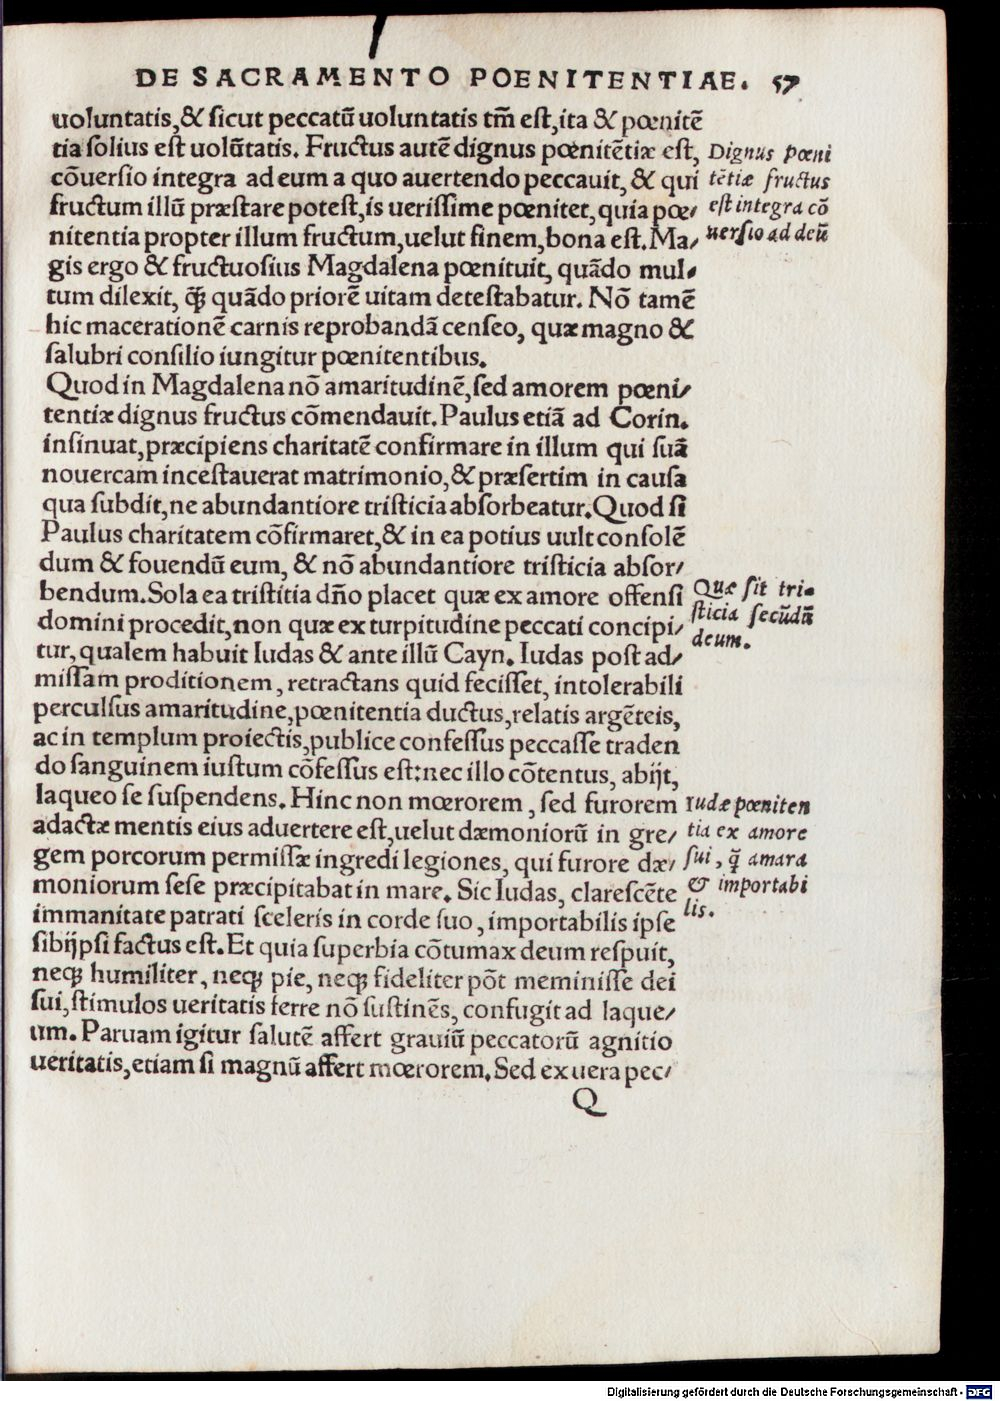 DE SACRAMENTO POENITENTIAE. 57
uoluntatis,& sicut peccatū uoluntatis tm̄ est,ita & pœnitē
tia solius est uolūtatis. Fructus autē dignus pœnitētiæ est,
cōuersio integra ad eum a quo auertendo peccauit, & qui
fructum illū præstare potest,is uerissime pœnitet,quia pœ/
nitentia propter illum fructum,uelut finem,bona est. Ma/
gis ergo & fructuosius Magdalena pœnituit, quādo mul/
tum dilexit, q̄ꝫ quādo priorē uitam detestabatur. Nō tamē
hic macerationē carnis reprobandā censeo, quæ magno &
salubri consilio iungitur pœnitentibus.
Dignus pœni
tētiæ fructus
est integra cō
uersio ad deū
Quod in Magdalena nō amaritudinē,sed amorem pœni/
tentiæ dignus fructus cōmendauit. Paulus etiā ad Corin.
insinuat,præcipiens charitatē confirmare in illum qui suā
nouercam incestauerat matrimonio,& præsertim in causa
qua subdit,ne abundantiore tristicia absorbeatur.Quod si
Paulus charitatem cōfirmaret,& in ea potius uult consolē
dum & fouendū eum, & nō abundantiore tristicia absor/
bendum.Sola ea tristitia dn̄o placet quæ ex amore offensi
domini procedit,non quæ ex turpitudine peccati concipi/
tur,qualem habuit Iudas & ante illū Cayn. Iudas post ad/
missam proditionem, retractans quid fecisset, intolerabili
perculsus amaritudine,pœnitentia ductus,relatis argēteis,
ac in templum proiectis,publice confessus peccasse traden
do sanguinem iustum cōfessus est:nec illo cōtentus, abijt,
laqueo se suspendens. Hinc non mœrorem, sed furorem
adactæ mentis eius aduertere est,uelut dæmoniorū in gre/
gem porcorum permissæ ingredi legiones, qui furore dæ/
moniorum sese præcipitabat in mare. Sic Iudas, clarescēte
immanitate patrati sceleris in corde suo, importabilis ipse
sibijpsi factus est. Et quia superbia cōtumax deum respuit,
neqꝫ humiliter, neqꝫ pie, neqꝫ fideliter pōt meminisse dei
sui,stimulos ueritatis ferre nō sustinēs, confugit ad laque/
um. Paruam igitur salutē affert grauiū peccatorū agnitio
ueritatis,etiam si magnū affert mœrorem. Sed ex uera pec/
Quæ sit tri-
sticia secūdū
deum.
Iudæ pœniten
tia ex amore
sui, q̄ amara
& importabi
lis.
Q
Digitalisierung gefördert durch die Deutsche Forschungsgemeinschaft - DFG